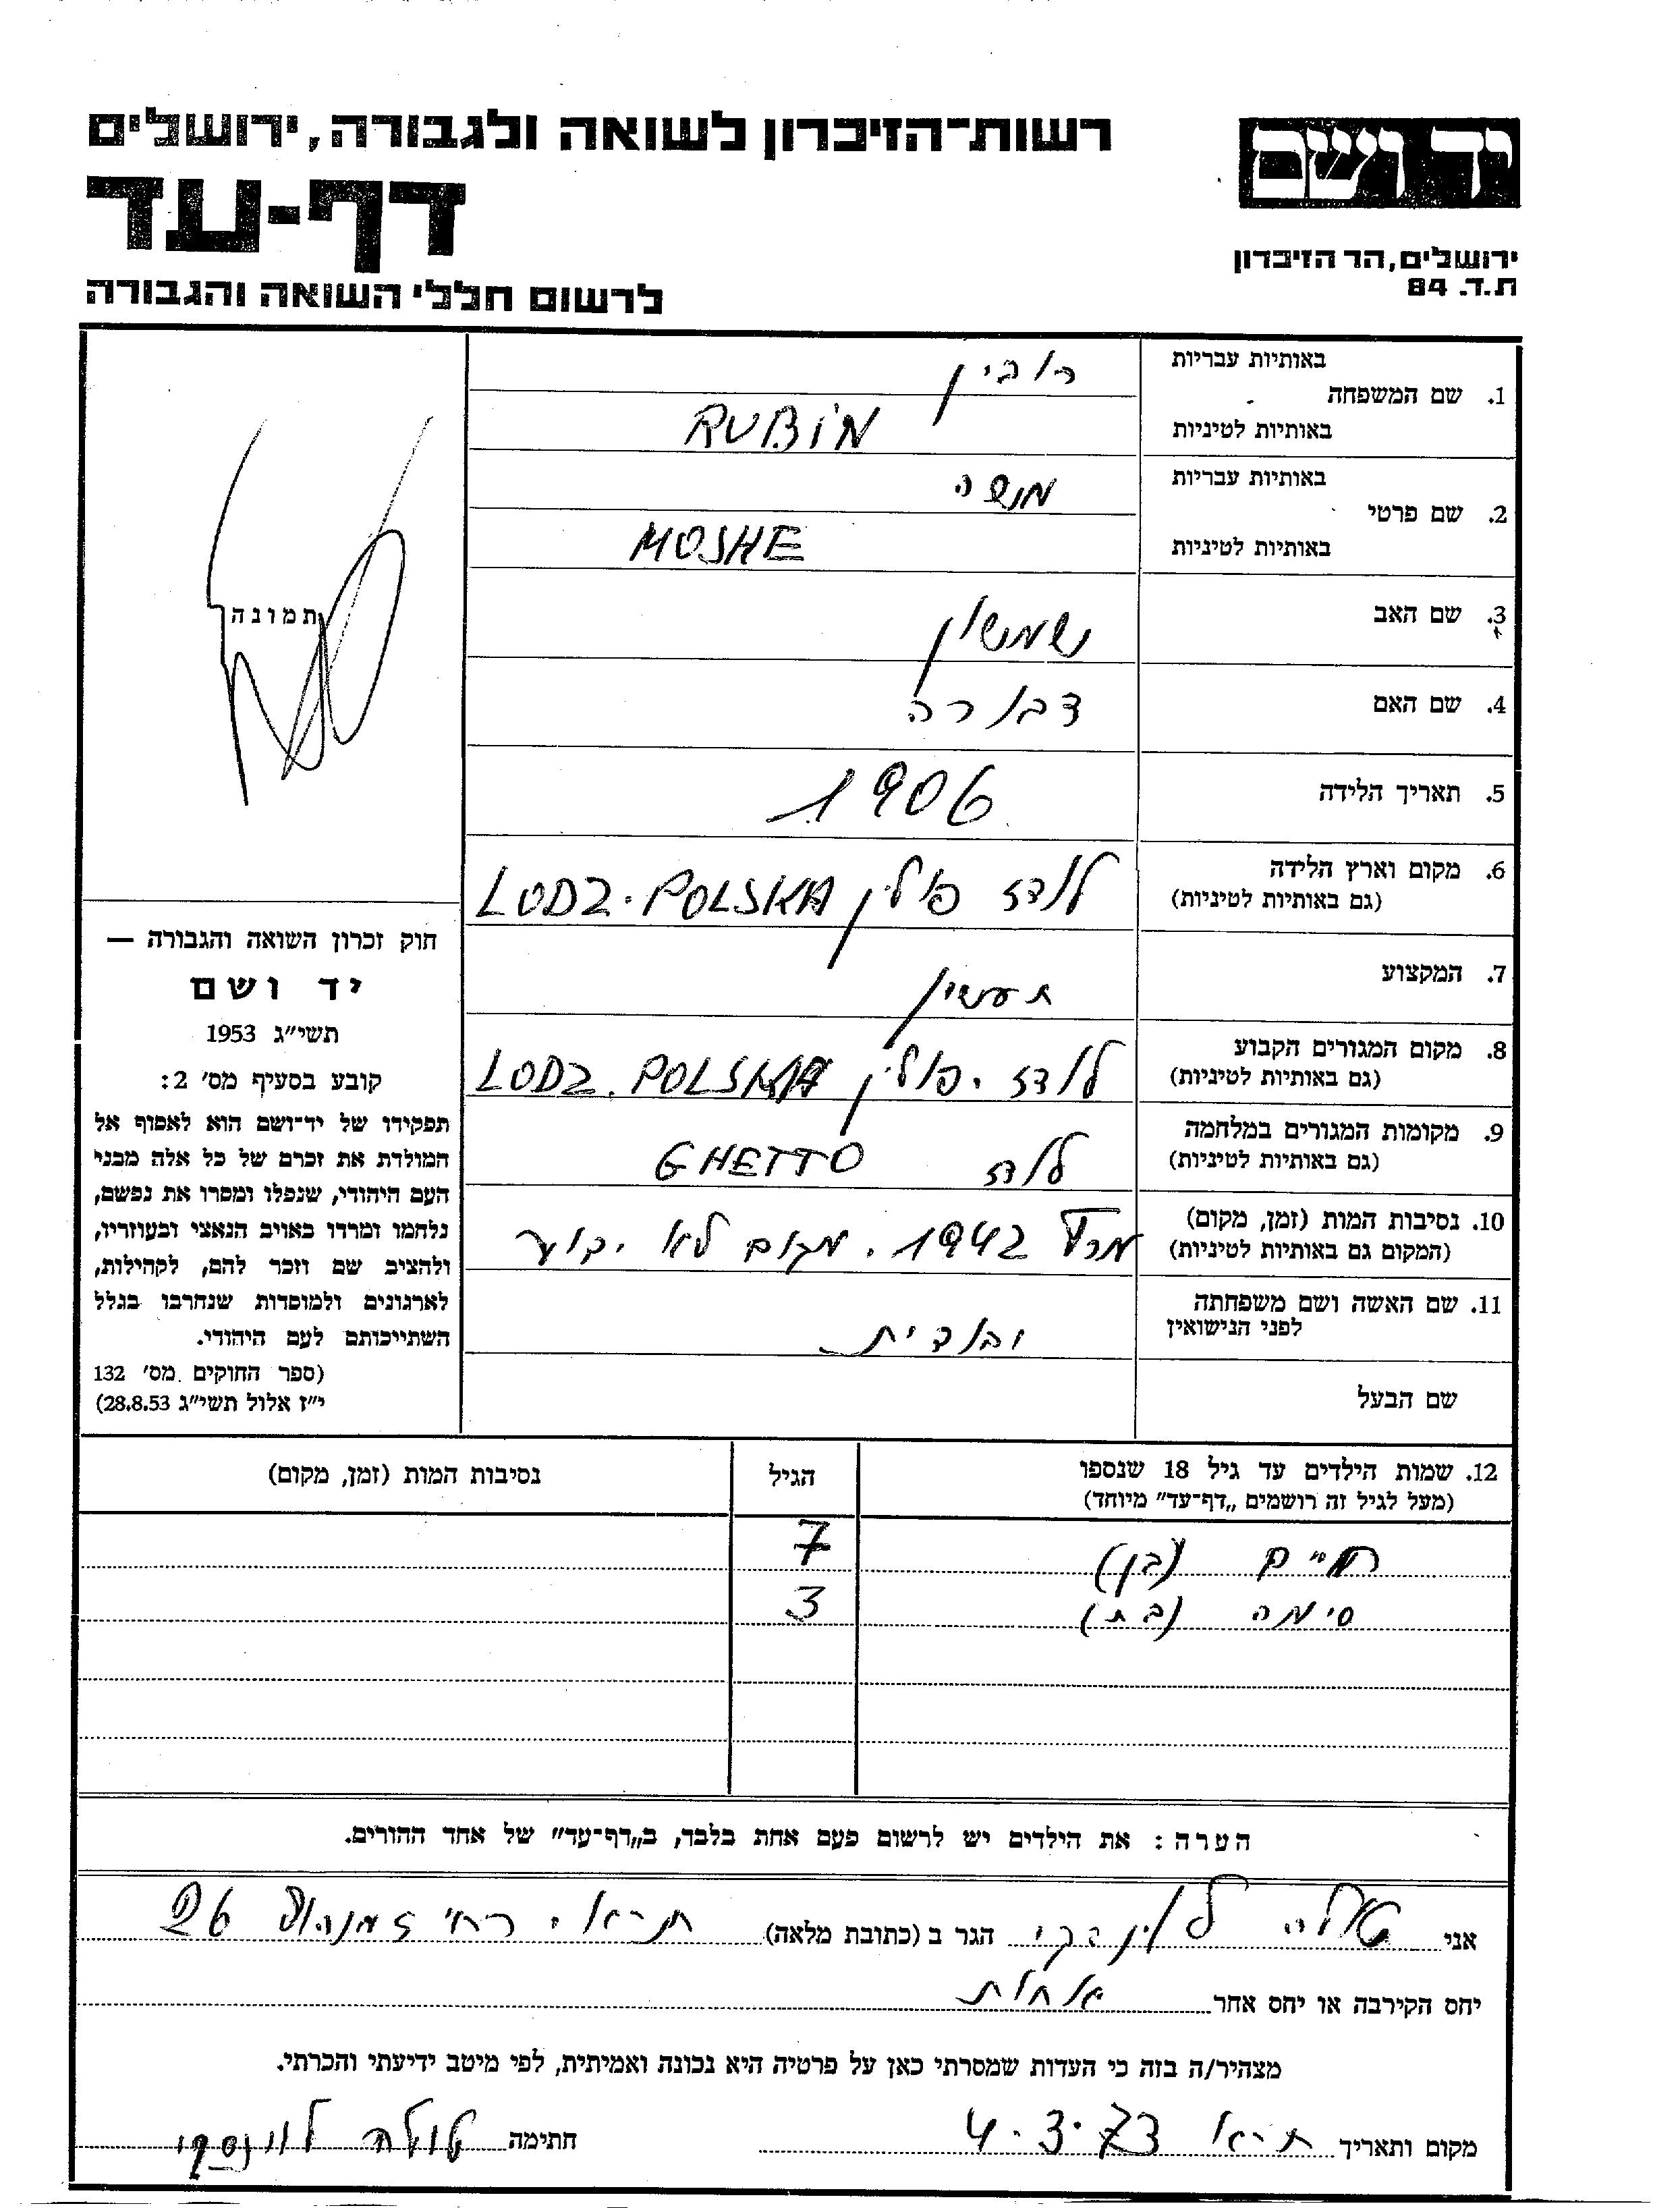 יד ושם
רשות־הזיכרון לשואה ולגבורה, ירושלים
דף-עד
ירושלים, הר הזיכרון
ת.ד. 84
לרשום חללי השואה והגבורה
באותיות עבריות רובין
1. שם המשפחה
באותיות לטיניות RUBIN
באותיות עבריות משה
2. שם פרטי
באותיות לטיניות MOSHE
3. שם האב שמשון
4. שם האם דבורה
5. תאריך הלידה 1906
6. מקום וארץ הלידה
(גם באותיות לטיניות) לודז פולין LODZ. POLSKA
7. המקצוע תעשין
8. מקום המגורים הקבוע
(גם באותיות לטיניות) לודז. פולין LODZ. POLSKA
9. מקומות המגורים במלחמה
(גם באותיות לטיניות) לודז GHETTO
10. נסיבות המות (זמן, מקום)
(המקום גם באותיות לטיניות) 1942. מקום לא ידוע
11. שם האשה ושם משפחתה
לפני הנישואין
שם הבעל
תמונה
חוק זכרון השואה והגבורה —
יד ושם
תשי״ג 1953
קובע בסעיף מס׳ 2:
תפקידו של יד־ושם הוא לאסוף אל
המולדת את זכרם של כל אלה מבני
העם היהודי, שנפלו ומסרו את נפשם,
נלחמו ומרדו באויב הנאצי ובעוזריו,
ולהציב שם וזכר להם, לקהילות,
לארגונים ולמוסדות שנחרבו בגלל
השתייכותם לעם היהודי.
(ספר החוקים מס׳ 132
י״ז אלול תשי״ג 28.8.53)
12. שמות הילדים עד גיל 18 שנספו הגיל נסיבות המות (זמן, מקום)
(מעל לגיל זה רושמים „דף־עד״ מיוחד)
חיים (בן) 7
סימה (בת) 3
הערה: את הילדים יש לרשום פעם אחת בלבד, ב„דף־עד״ של אחד ההורים.
אני טולה לוינסקי הגר ב (כתובת מלאה) 26
יחס הקירבה או יחס אחר אחות
מצהיר/ה בזה כי העדות שמסרתי כאן על פרטיה היא נכונה ואמיתית, לפי מיטב ידיעתי והכרתי.
מקום ותאריך ת-א 4.3.73 חתימה טולה לוינסקי